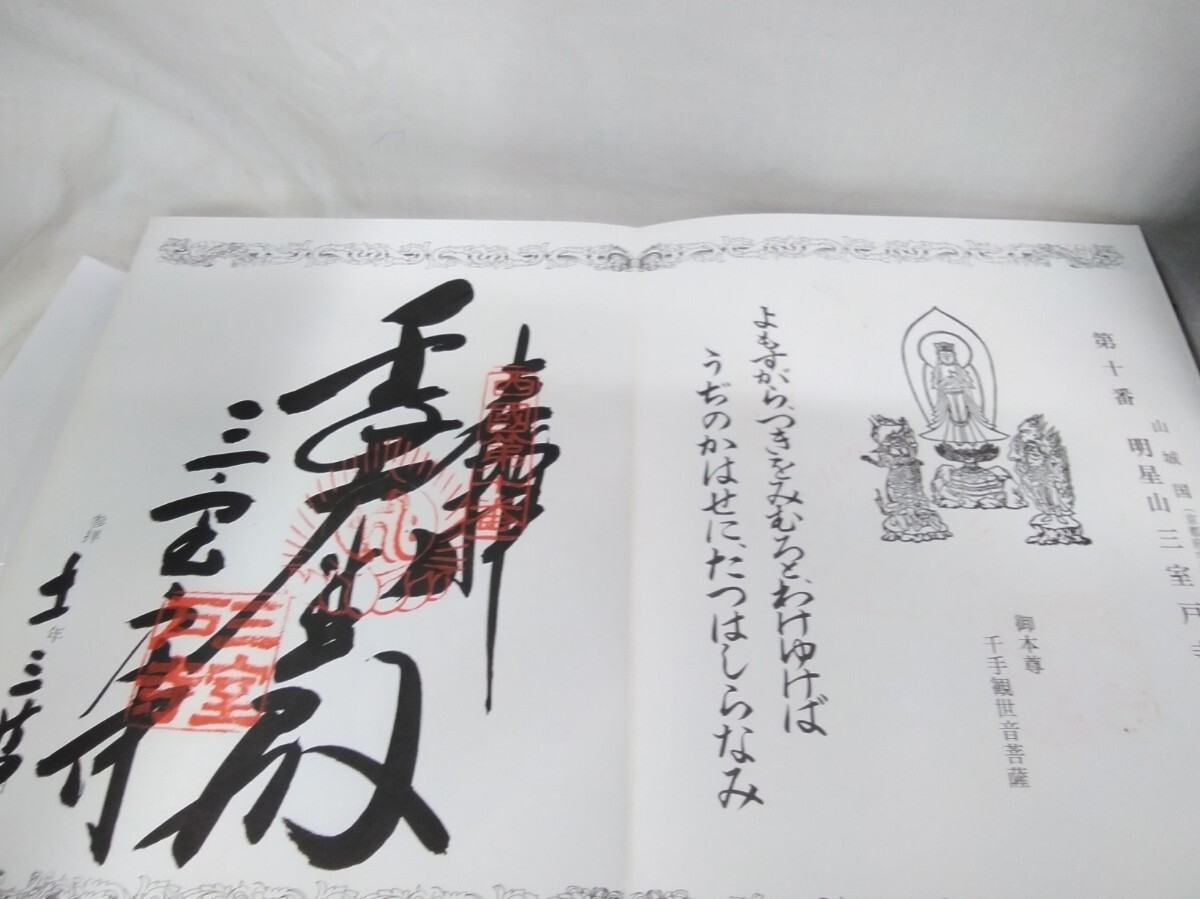 第十番
山城国
明星山三室戸
御本尊
千手観世音菩薩
よもすがら、つきをみむろと、わけゆけば
うぢのかはせに、たつはしらなみ
奉拝
西國第十番
大悲殿
三室戸寺
三室戸寺
参拝
年